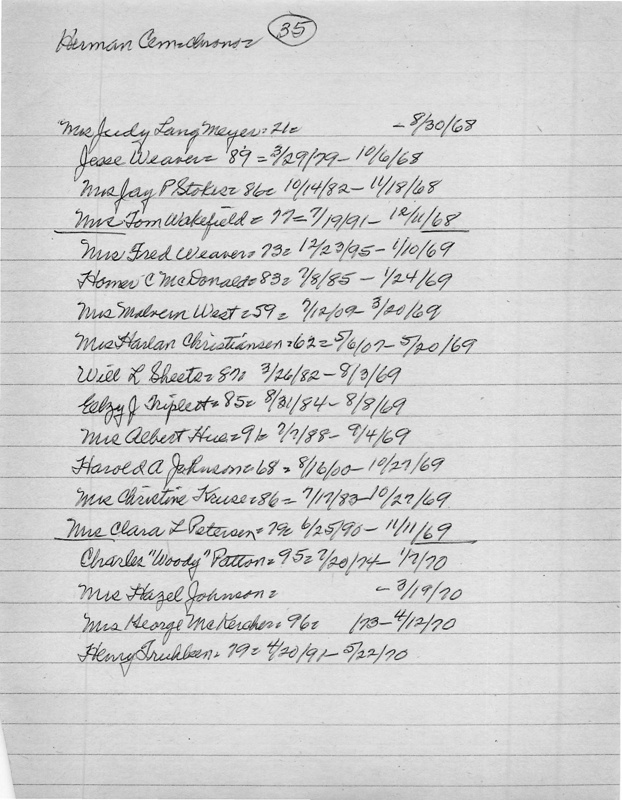 Herman Cem=chrono= 35
Mrs Judy Lang Meyer=21= - 8/30/68
Jesse Weaver= 89 = 3/29/79- 10/6/68
Mrs Jay P Stokes= 86= 10/14/82- 11/18/68
Mrs Tom Wakefield= 77= 7/19/91- 12/11/68
Mrs Fred Weaver=73= 12/23/95- 1/10/69
Homer C McDonald=83= 7/8/85 - 1/24/69
Mrs Malvern West=59= 7/12/09- 3/20/69
Mrs Harlan Christiansen=62=5/6/07-5/20/69
Will L Sheets=87= 3/26/82-8/3/69
J Triplett=85= 8/31/84-8/8/69
Mrs Albert =91= 7/7/88- 9/4/69
Harold A Johnson=68= 8/16/00- 10/27/69
Mrs Christine Kruse=86= 7/17/83-10/27/69
Mrs Clara L Petersen=79= 6/25/90- 11/11/69
Charles "Woody" Patton=95=7/20/74-1/7/70
Mrs Hazel Johnson= - 3/19/70
Mrs George McKercher= 96= /73-4/12/70
Henry = 79= 4/20/91- 5/22/70